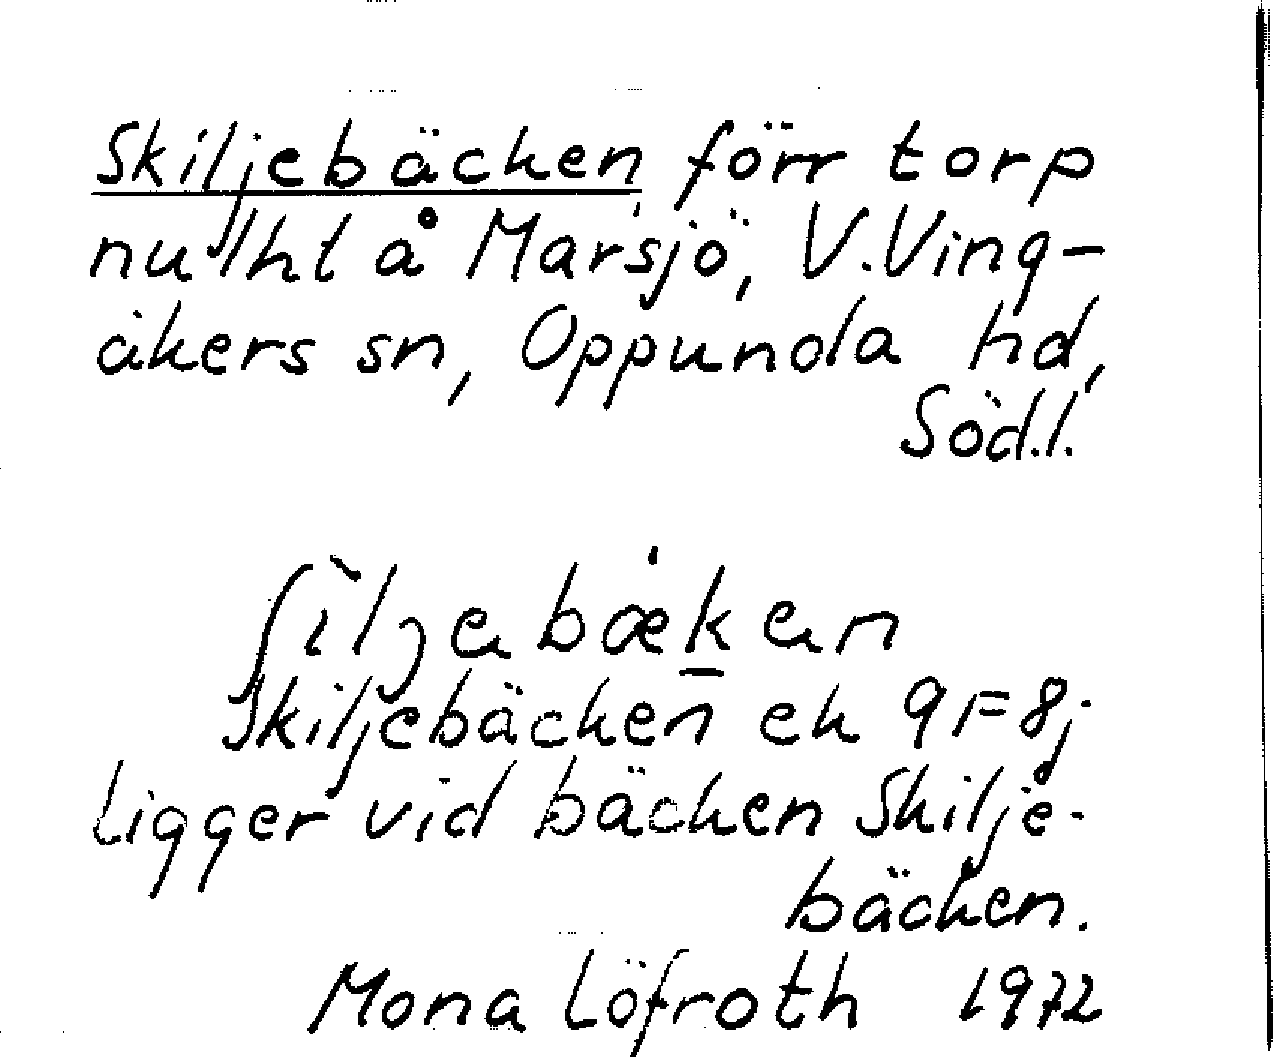 Skiljebäcken förr torp
nu lht å Marsjö, V.Ving-
åkers sn, Oppunda hd,
Södl.
ʃìljebækan
Skiljebäcken ek 9F8j
Ligger vid bäcken Skilje-
bäcken.
Mona Löfroth 1972